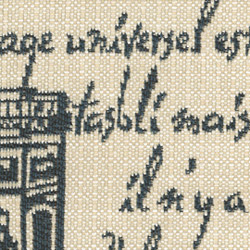 age universel est
etabli mais
il n'y a